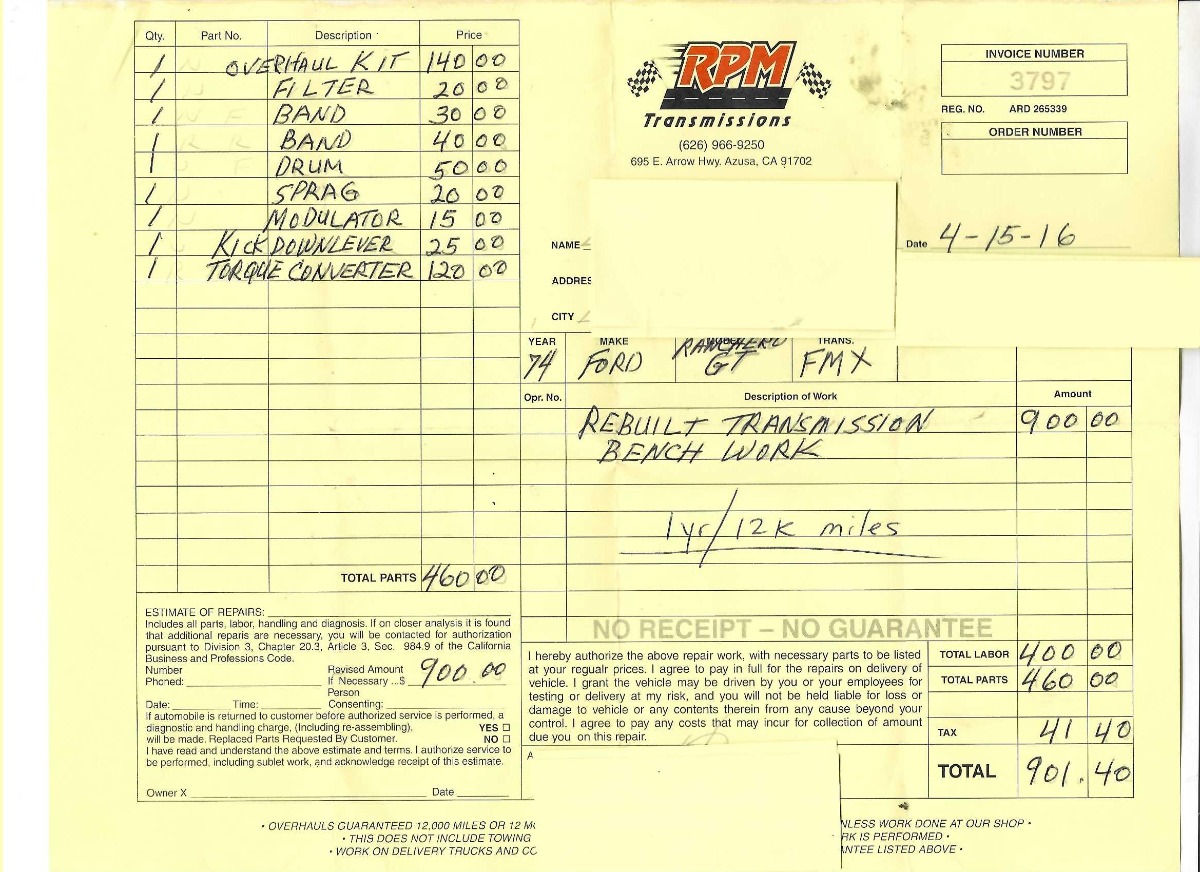 Qty. Part No. Description Price
1 OVERHAUL KIT 140 00
1 FILTER 20 00
1 BAND 30 00
1 BAND 40 00
1 DRUM 50 00
1 SPRAG 20 00
1 MODULATOR 15 00
1 KICKDOWNLEVER 25 00
1 TORQUE CONVERTER 120 00
TOTAL PARTS 460 00
RPM
Transmissions
(626) 966-9250
695 E. Arrow Hwy. Azusa, CA 91702
INVOICE NUMBER
3797
REG. NO. ARD 265339
ORDER NUMBER
NAME
Date 4-15-16
ADDRES
CITY
YEAR MAKE TRANS.
74 FORD RANCHERO GT FMX
Opr. No. Description of Work Amount
REBUILT TRANSMISSION 900 00
BENCH WORK
1yr/12K miles
NO RECEIPT – NO GUARANTEE
ESTIMATE OF REPAIRS:
Includes all parts, labor, handling and diagnosis. If on closer analysis it is found
that additional reparis are necessary, you will be contacted for authorization
pursuant to Division 3, Chapter 20.3, Article 3, Sec. 984.9 of the California
Business and Professions Code.
Number Revised Amount
Phoned: If Necessary ...$ 900.00
Person
Date: Time: Consenting:
If automobile is returned to customer before authorized service is performed, a
diagnostic and handling charge, (Including re-assembling), YES
will be made. Replaced Parts Requested By Customer. NO
I have read and understand the above estimate and terms. I authorize service to
be performed, including sublet work, and acknowledge receipt of this estimate.
Owner X Date
I hereby authorize the above repair work, with necessary parts to be listed
at your regualr prices. I agree to pay in full for the repairs on delivery of
vehicle. I grant the vehicle may be driven by you or your employees for
testing or delivery at my risk, and you will not be held liable for loss or
damage to vehicle or any contents therein from any cause beyond your
control. I agree to pay any costs that may incur for collection of amount
due you on this repair.
TOTAL LABOR 400 00
TOTAL PARTS 460 00
TAX 41 40
TOTAL 901.40
• OVERHAULS GUARANTEED 12,000 MILES OR 12 NLESS WORK DONE AT OUR SHOP •
• THIS DOES NOT INCLUDE TOWING RK IS PERFORMED •
• WORK ON DELIVERY TRUCKS AND NTEE LISTED ABOVE •